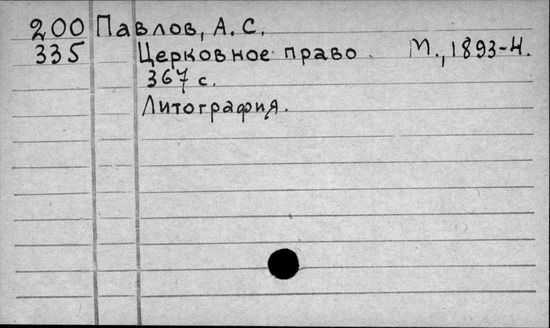 200 Павлов, А. С.
335 Церковное право. М., 1893-4.
367 с.
Литография.